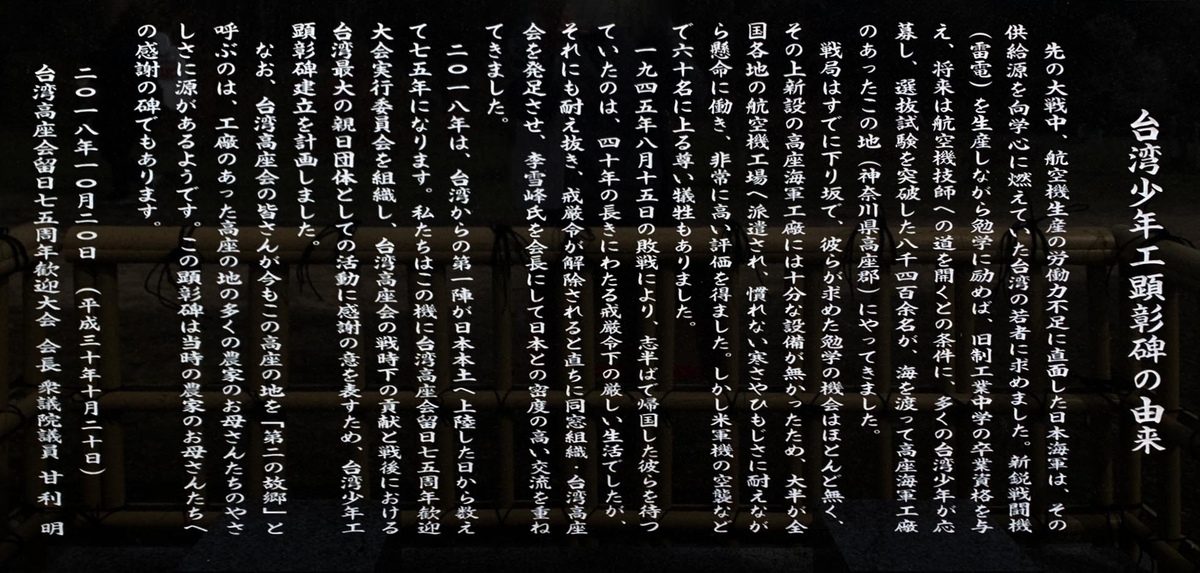 台湾少年工顕彰碑の由来
先の大戦中、航空機生産の労働力不足に直面した日本海軍は、その
供給源を向学心に燃えていた台湾の若者に求めました。新鋭戦闘機
（雷電）を生産しながら勉学に励めば、旧制工業中学の卒業資格を与
え、将来は航空機技師への道を開くとの条件に、多くの台湾少年が応
募し、選抜試験を突破した八千四百余名が、海を渡って高座海軍工廠
のあったこの地（神奈川県高座郡）にやってきました。
戦局はすでに下り坂で、彼らが求めた勉学の機会はほとんど無く、
その上新設の高座海軍工廠には十分な設備が無かったため、大半が全
国各地の航空機工場へ派遣され、慣れない寒さやひもじさに耐えなが
ら懸命に働き、非常に高い評価を得ました。しかし米軍機の空襲など
で六十名に上る尊い犠牲もありました。
一九四五年八月十五日の敗戦により、志半ばで帰国した彼らを待つ
ていたのは、四十年の長きにわたる戒厳令下の厳しい生活でしたが、
それにも耐え抜き、戒厳令が解除されると直ちに同窓組織・台湾高座
会を発足させ、李雪峰氏を会長にして日本との密度の高い交流を重ね
てきました。
二〇一八年は、台湾からの第一陣が日本本土へ上陸した日から数え
て七五年になります。私たちはこの機に台湾高座会留日七五周年歓迎
大会実行委員会を組織し、台湾高座会の戦時下の貢献と戦後における
台湾最大の親日団体としての活動に感謝の意を表すため、台湾少年工
顕彰碑建立を計画しました。
なお、台湾高座会の皆さんが今もこの高座の地を「第二の故郷」と
呼ぶのは、工廠のあった高座の地の多くの農家のお母さんたちのやさ
しさに源があるようです。この顕彰碑は当時の農家のお母さんたちへ
の感謝の碑でもあります。
二〇一八年一〇月二〇日　（平成三十年十月二十日）
台湾高座会留日七五周年歓迎大会　会長　衆議院議員　甘利　明